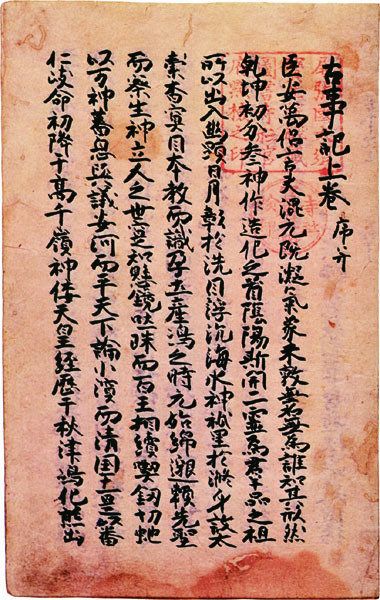 古事記上巻 序并
臣安萬侶言夫混元既凝氣象未敦無名無為誰知其形然
乾坤初分參神作造化之首陰陽斯開二靈為群品之祖
所以出入幽顯日月彰於洗目浮沉海水神祇呈於滌身故太
素杳冥因本教而識孕土產嶋之時元始綿邈頼先聖
而察生神立人之世寔知懸鏡吐珠而百王相續喫釼切蛇
以万神蕃息與議安河而平天下論小濱而清国土是以番
仁岐命初降于高千嶺神倭天皇經歷于秋津嶋化熊出